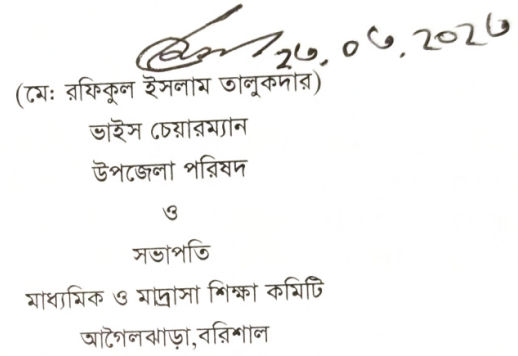 (মোঃ রফিকুল ইসলাম তালুকদার)
ভাইস চেয়ারম্যান
উপজেলা পরিষদ
ও
সভাপতি
মাধ্যমিক ও মাদ্রাসা শিক্ষা কমিটি
আগৈলঝাড়া,বরিশাল